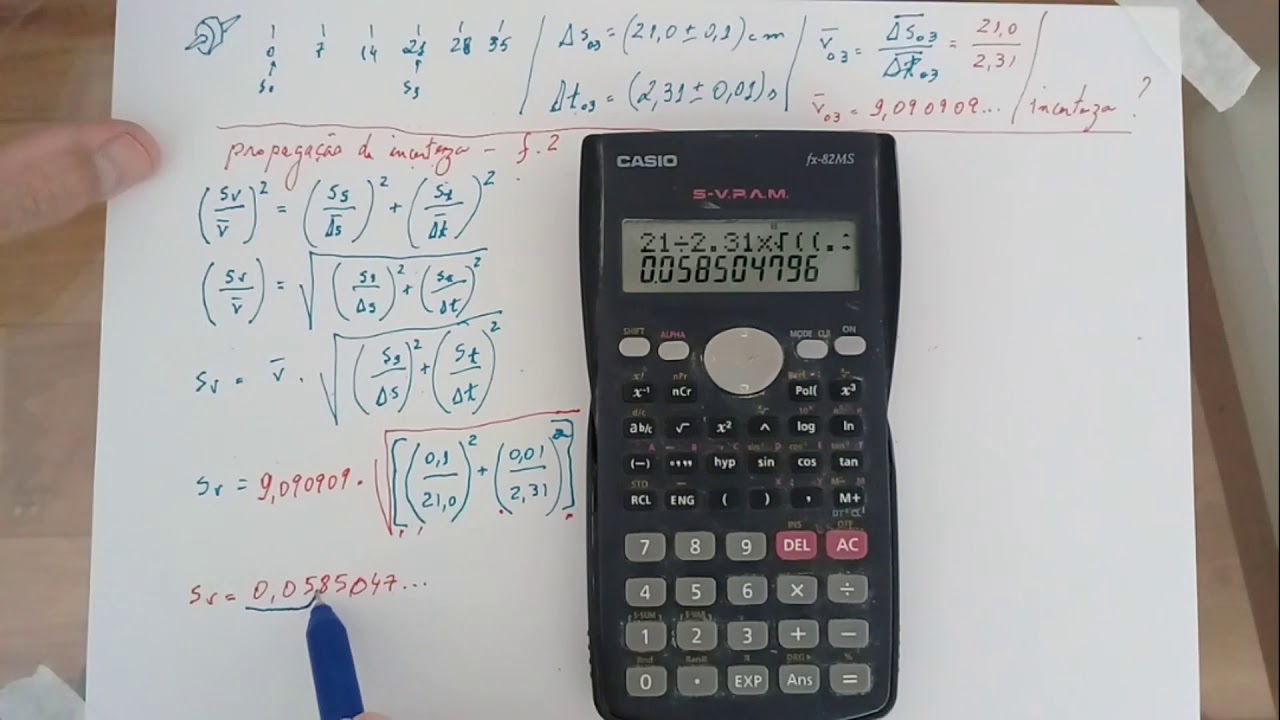 0 7 14 21 28 35
S₀ S₃
Δs₀₃ = (21,0 ± 0,1) cm
Δt₀₃ = (2,31 ± 0,01) s
v̄₀₃ = Δs₀₃/Δt₀₃ = 21,0/2,31
v̄₀₃ = 9,090909... / incerteza ?
propagação de incerteza – f.2
(Sv/v̄)² = (Ss/Δs)² + (St/Δt)²
(Sv/v̄) = √(Ss/Δs)² + (St/Δt)²
Sv = v̄ · √(Ss/Δs)² + (St/Δt)²
Sv = 9,090909 · √[(0,1/21,0)² + (0,01/2,31)²]
Sv = 0,0585047...
CASIO fx-82MS
S-V.P.A.M.
21÷2.31×√((.
0.058504796
SHIFT ALPHA MODE CLR ON
x! nPr
x⁻¹ nCr Pol( x³
d/c
ab/c √ x² ^ log ln
(−) °’” hyp sin cos tan
STO
RCL ENG ( ) , M+
INS OFF
7 8 9 DEL AC
4 5 6 × ÷
S-SUM S-VAR
1 2 3 + −
Rnd Ran# π DRG▸ %
0 . EXP Ans =